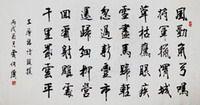 風勁角弓鳴
將軍獵渭城
草枯鷹眼疾
雪盡馬蹄輕
忽過新豐市
還歸細柳營
回看射雕處
千里暮雲平